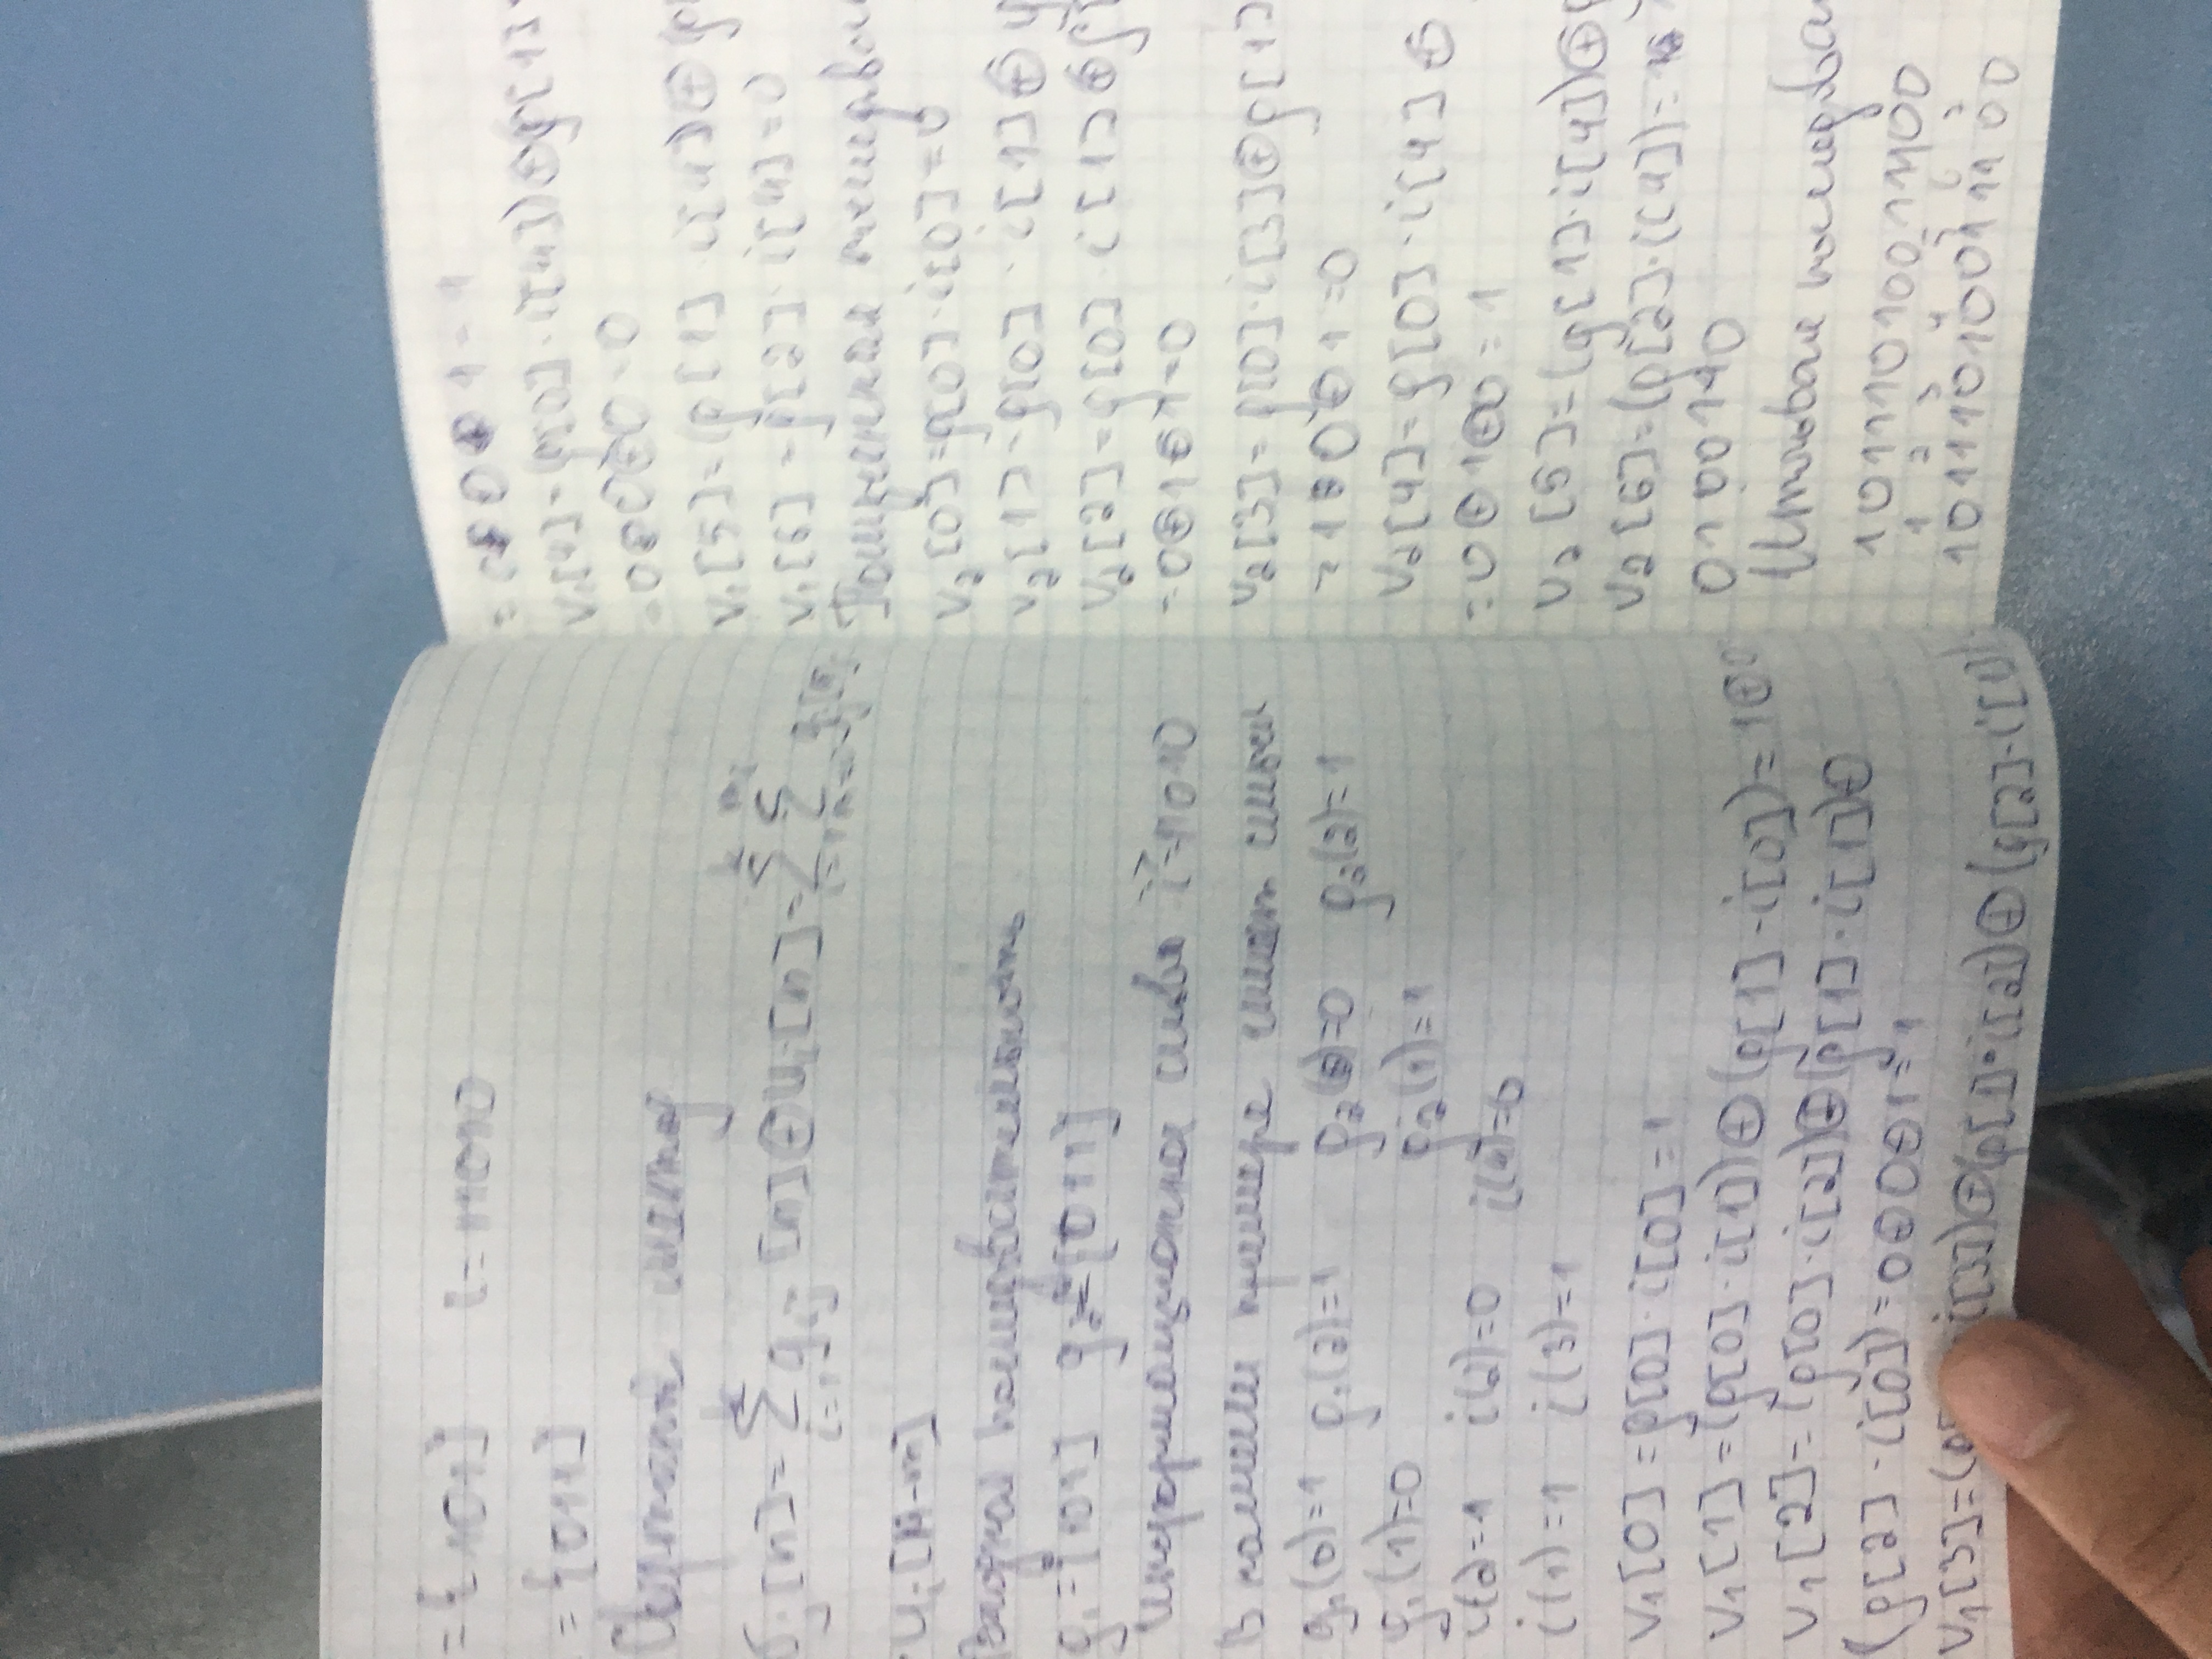 = {101} i = 11010
= {011}
метод
[n] = Σ g [n] ⊕ u [n] = Σ Σ
k i=1 k i=1
u [n-m]
Входная последовательность
g₁ = {101} g₂ = {011}
Информационное слово i = 11010
В нашем примере имеет смысл
g₁(0)=1 g₁(2)=1 g₂(0)=0 g₂(2)=1
g₁(1)=0 g₂(1)=1
i(2)=0 i(4)=0
i(1)=1 i(3)=1
v₁[0] = g[0] · i[0] = 1
v₁[1] = (g[0] · i[1]) ⊕ (g[1] · i[0]) = 1⊕0
v₁[2] = (g[0] · i[2]) ⊕ (g[1] · i[1]) ⊕
(g[2] · i[0]) = 0⊕0⊕1 = 1
v₁[3] = i[3]) ⊕ (g[1] · i[2]) ⊕ (g[2] · i[1])
1 = 1
v₁[4] = (g[0] · i[4]) ⊕ g[1]
= 0⊕0⊕0 = 0
v₁[5] = (g[1] · i[4]) ⊕ (g
v₁[6] = g[2] · i[4] = 0
Полученная
v₂[0] = g[0] · i[0] = 0
v₂[1] = g[0] · i[1] ⊕ g
v₂[2] = g[0] · i[1] ⊕ g[
= 0⊕1⊕1 = 0
v₂[3] = g[0] · i[3] ⊕ g[1]
= 1⊕0⊕1 = 0
v₂[4] = g[0] · i[4] ⊕
= 0⊕1⊕0 = 1
v₂[5] = (g[1] · i[4]) ⊕ g
v₂[6] = (g[2] · i[4]) =
0100110
Итоговая последова
10111010011100
1 2 3 4 5 6
10111010011100